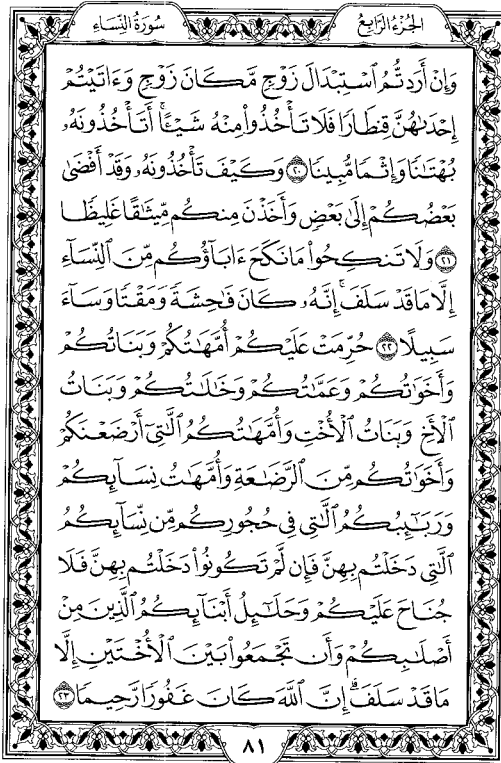 سُورَةُ النِّسَاءِ
الجُزْءُ الرَّابِعُ
وَإِنْ أَرَدتُّمُ ٱسْتِبْدَالَ زَوْجٍ مَّكَانَ زَوْجٍ وَءَاتَيْتُمْ
إِحْدَىٰهُنَّ قِنطَارًا فَلَا تَأْخُذُوا۟ مِنْهُ شَيْـًٔا ۚ أَتَأْخُذُونَهُۥ
بُهْتَٰنًا وَإِثْمًا مُّبِينًا ٢٠ وَكَيْفَ تَأْخُذُونَهُۥ وَقَدْ أَفْضَىٰ
بَعْضُكُمْ إِلَىٰ بَعْضٍ وَأَخَذْنَ مِنكُم مِّيثَٰقًا غَلِيظًا
٢١ وَلَا تَنكِحُوا۟ مَا نَكَحَ ءَابَآؤُكُم مِّنَ ٱلنِّسَآءِ
إِلَّا مَا قَدْ سَلَفَ ۚ إِنَّهُۥ كَانَ فَٰحِشَةً وَمَقْتًا وَسَآءَ
سَبِيلًا ٢٢ حُرِّمَتْ عَلَيْكُمْ أُمَّهَٰتُكُمْ وَبَنَاتُكُمْ
وَأَخَوَٰتُكُمْ وَعَمَّٰتُكُمْ وَخَٰلَٰتُكُمْ وَبَنَاتُ
ٱلْأَخِ وَبَنَاتُ ٱلْأُخْتِ وَأُمَّهَٰتُكُمُ ٱلَّٰتِىٓ أَرْضَعْنَكُمْ
وَأَخَوَٰتُكُم مِّنَ ٱلرَّضَٰعَةِ وَأُمَّهَٰتُ نِسَآئِكُمْ
وَرَبَٰٓئِبُكُمُ ٱلَّٰتِى فِى حُجُورِكُم مِّن نِّسَآئِكُمُ
ٱلَّٰتِى دَخَلْتُم بِهِنَّ فَإِن لَّمْ تَكُونُوا۟ دَخَلْتُم بِهِنَّ فَلَا
جُنَاحَ عَلَيْكُمْ وَحَلَٰٓئِلُ أَبْنَآئِكُمُ ٱلَّذِينَ مِنْ
أَصْلَٰبِكُمْ وَأَن تَجْمَعُوا۟ بَيْنَ ٱلْأُخْتَيْنِ إِلَّا
مَا قَدْ سَلَفَ ۗ إِنَّ ٱللَّهَ كَانَ غَفُورًا رَّحِيمًا ٢٣
٨١